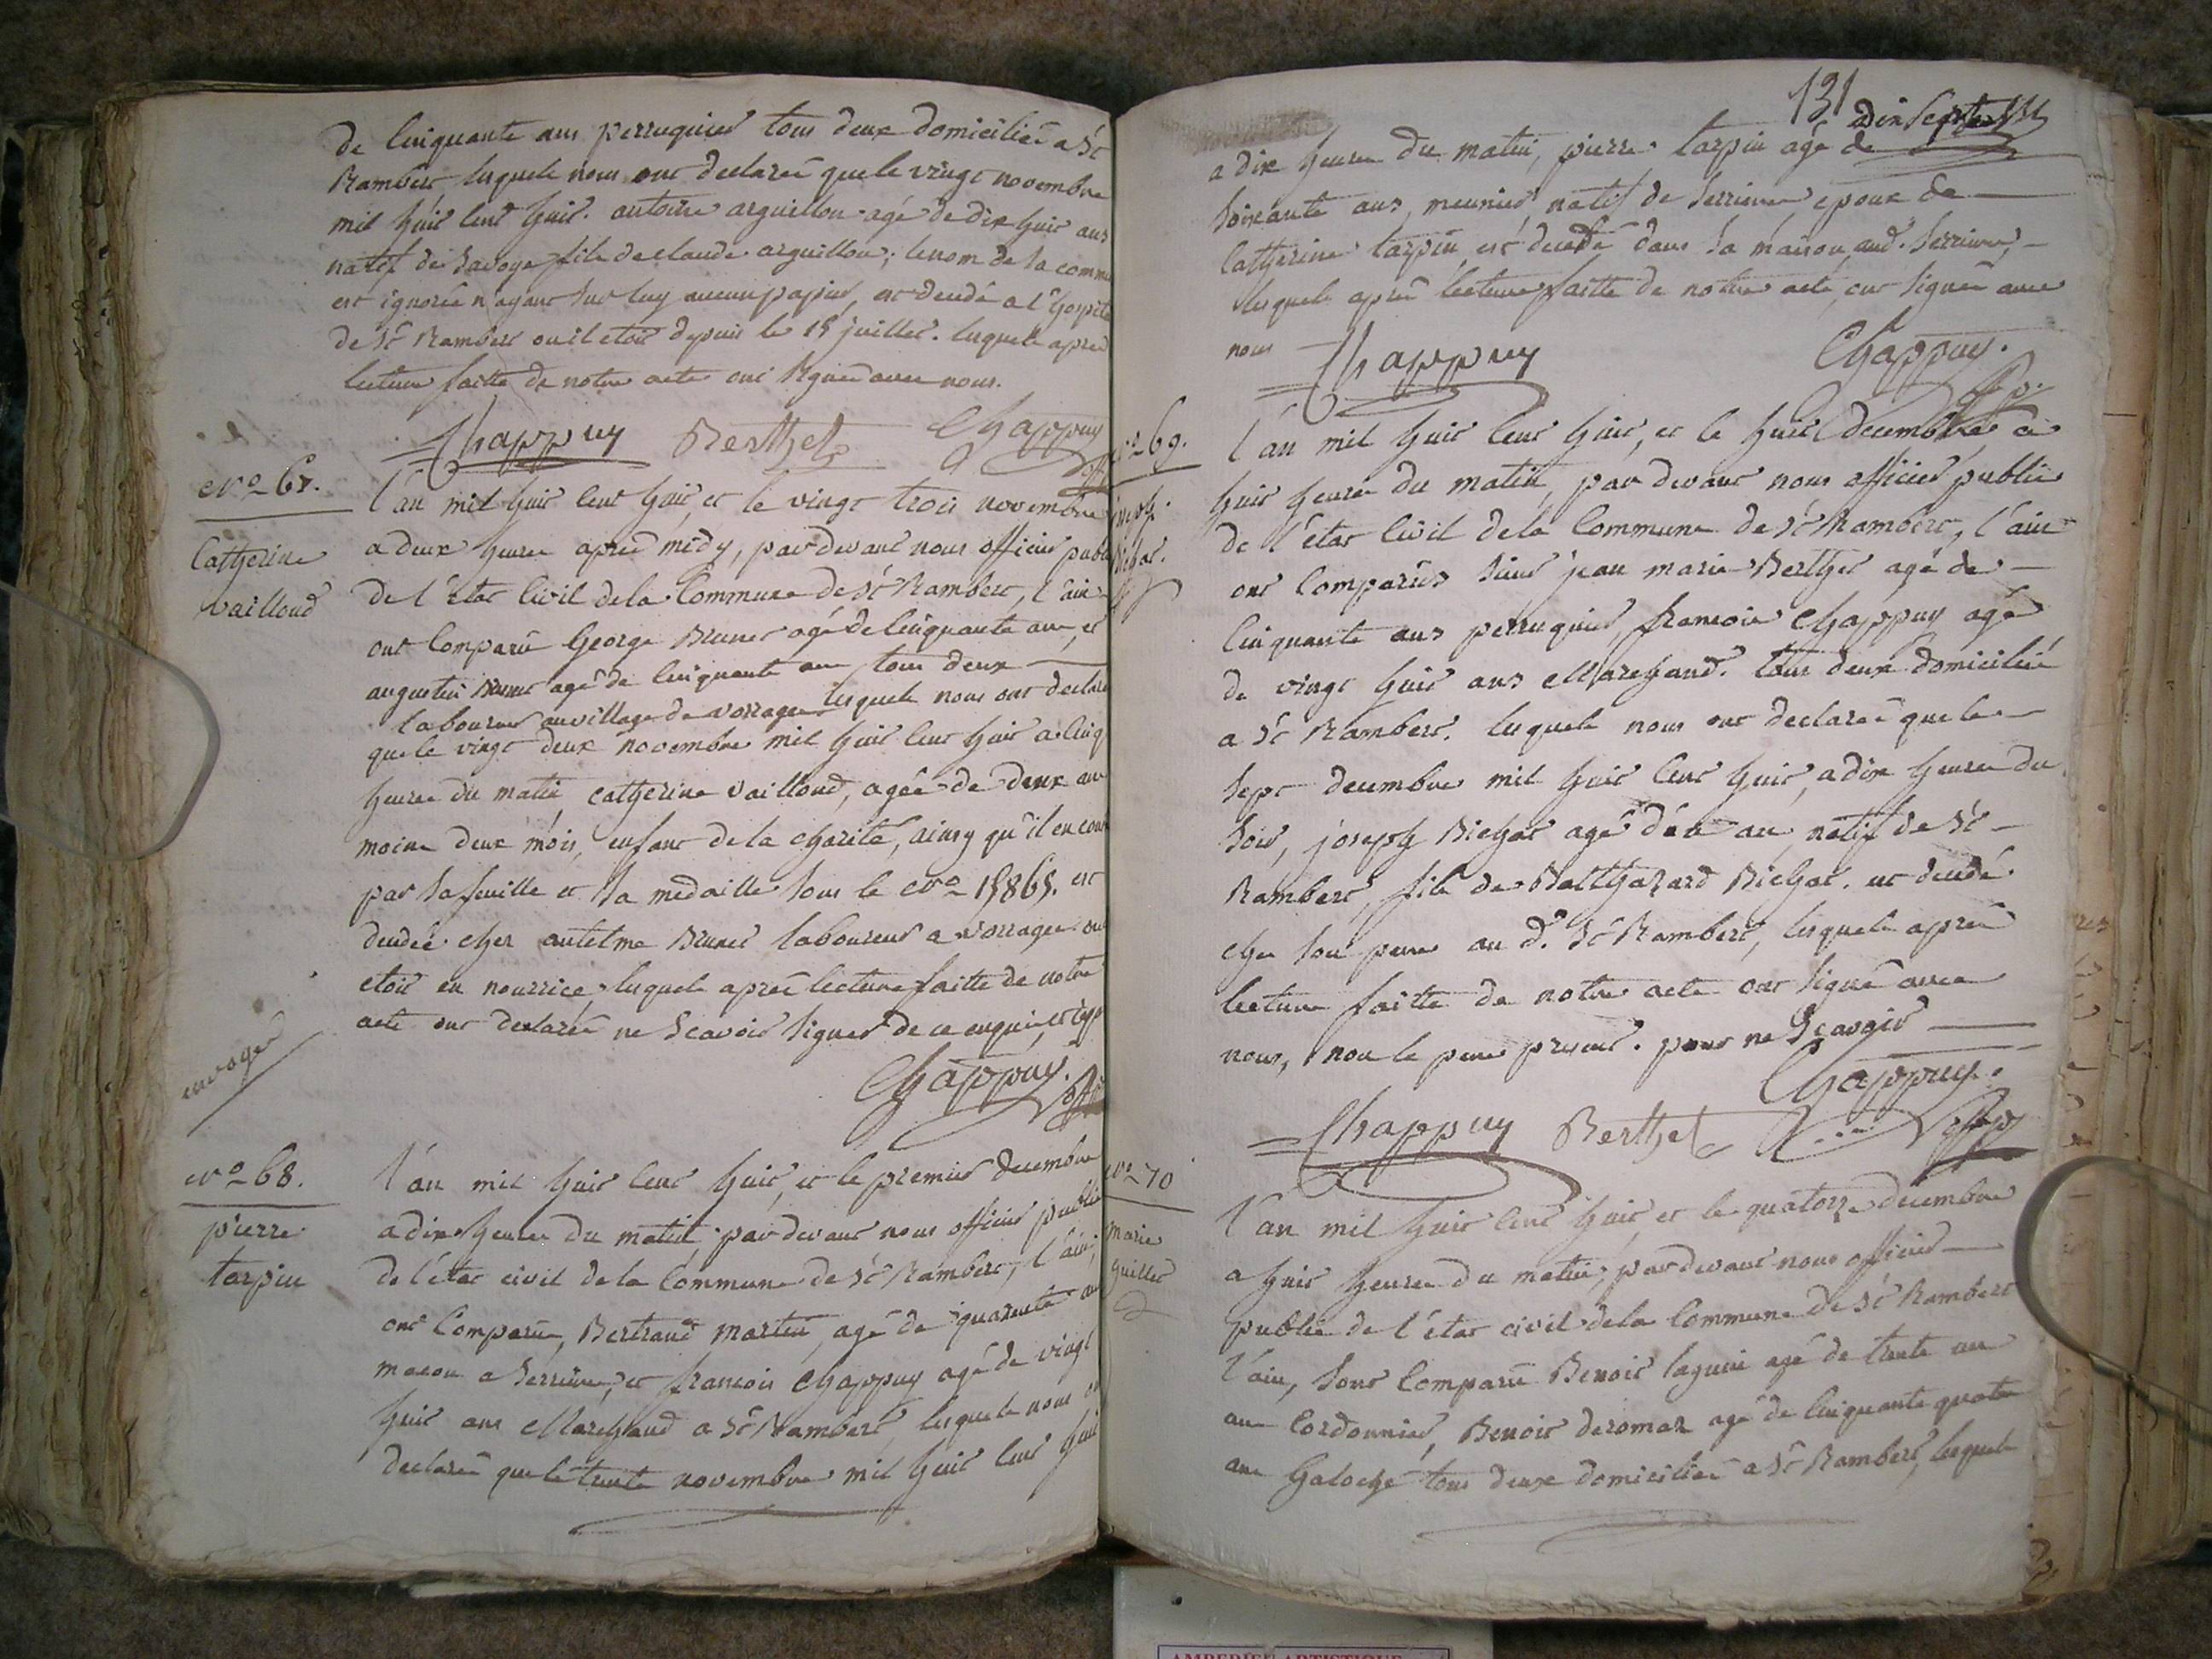 de cinquante ans perruquier tous deux domiciliés a St
Rambert lesquels nous ont declarés que le vingt novembre
mil huit cent huit. antoine arguillon agé de dix huit ans
natif de Savoye fils de claude arguillon; le nom de sa commu
est ignorée n'ayant sur luy aucun papier, est decedé a l'hospita
de St Rambert ou il etoit depuis le 15 juillet. lesquels après
lecture faitte de notre acte ont signés avec nous.
Chappuy Berthet Chappuy
No 67.
Catherine
vailloud
l'an mil huit cent huit, et le vingt trois novembre
a deux heures après midy, pardevant nous officier publi
de l'état civil de la Commune de St Rambert, l'ain
ont Comparu George Brunet agé de cinquante ans, et
augustin Brunet agé de cinquante ans tous deux
laboureur au village de vorragee lesquels nous ont declaré
que le vingt deux novembre mil huit cent huit a cinq
heures du matin catherine vailloud, agée de deux ans
moins deux mois, enfant de la charité, ainsy qu'il en cons
par sa feuille et sa medaille sous le No 15865. est
decedée chez antelme Brunet laboureur a vorragee ou
etoit en nourrice, lesquels après lecture faitte de notre
acte ont declarés ne Scavoir signer de ce enquis,
Chappuy.
envoyé
No 68.
pierre
tarpin
l'an mil huit cent huit, et le premier decembre
a dix heures du matin, pardevant nous officier public
de l'état civil de la Commune de St Rambert, l'ain,
ont Comparus, Bertrand martin, agé de quarente an
macon a Serrieres, et francois Chappuy agé de vingt
huit ans Marchand a St Rambert, lesquels nous on
declarés que le trente novembre mil huit cent huit
131 Dix Sept
a dix heures du matin, pierre tarpin agé de
soixante ans, meunier natif de Serrieres epoux de
Catherine tarpin est decedé dans sa maison aud. Serrieres,
lesquels après lecture faitte de notre acte, ont signés avec
nous
Chappuy Chappuy.
No 69.
joseph.
Bichat.
l'an mil huit cent huit, et le huit decembre a
huit heures du matin, par devant nous officier public
de l'état civil de la Commune de St Rambert, l'ain
ont Comparus sieur jean marie Berthet agé de
Cinquante ans perruquier, francois Chappuy agé
de vingt huit ans Marchand. tous deux domiciliés
a St Rambert. lesquels nous ont declarés que le
sept decembre mil huit cent huit, a dix heures du
soir, joseph Bichat agé d'un an, natif de St
Rambert, fils de Balthazard Bichat. est decedé
chez son pere au d. St Rambert, lesquels après
lecture faitte de notre acte ont signé avec
nous, non le pere present. pour ne Scavoir
Chappuy.
Chappuy Berthet
No 70
marie
Guillet
l'an mil huit cent huit, et le quatorze decembre
a huit heures du matin, pardevant nous officier
public de l'état civil de la Commune de St Rambert
l'ain, sont Comparus Benoit laguin agé de trente un
ans Cordonnier, Benoit deromas agé de cinquante quatre
ans Galoché tous deux domiciliés a St Rambert, lesquels